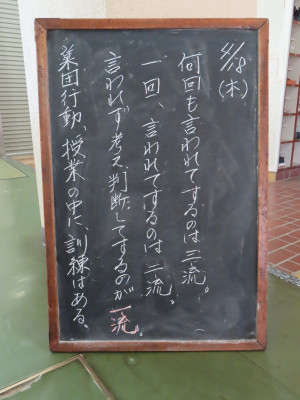 4/18(木)
何回も言われてするのは三流。
一回、言われてするのは二流。
言われず考え判断してするのが一流。
集団行動、授業の中に、訓練はある。